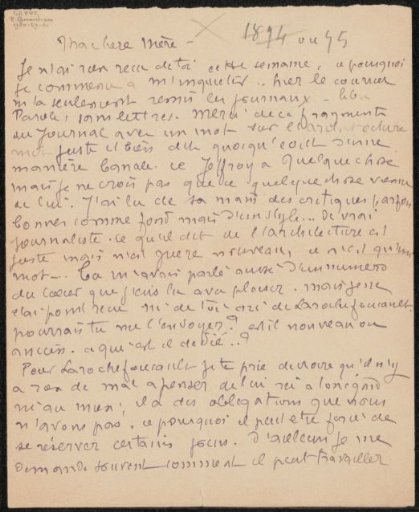 1894 ou 95
Ma chère Mère -
Je n'ai rien reçu de toi cette semaine, c pourquoi
je commence à m'inquiéter.. hier le courrier
m'a seulement remis les journaux -
Parole, sans lettres. Merci de ce fragment
du Journal avec un mot sur l'architecture
mot juste et bien dit quoiqu'écrit d'une
manière banale. ce Joffroy a quelque chose
mais je ne crois pas que ce quelque chose vienne
de lui. J'ai lu de sa main des critiques parfois
bonnes comme fond mais d'un style... de vrai
journaliste. ce qu'il dit de l'architecture est
juste mais n'est guère nouveau, ce n'est qu'un
mot.. Tu m'avais parlé aussi d'un numéro
du Cœur que j'eus lu avec plaisir. mais je ne
l'ai point reçu ni de toi ni de Larochefoucault
pourrais tu me l'envoyer? est il nouveau ou
ancien. a qui est il dédié..?
Pour Larochefoucault je te prie de croire qu'il n'y
a rien de mal a penser de lui ni a ton égard
ni au mien; il a des obligations que nous
n'avons pas. c pourquoi il peut etre forcé de
se réserver certains jours. d'ailleurs je me
demande souvent comment il peut travailler